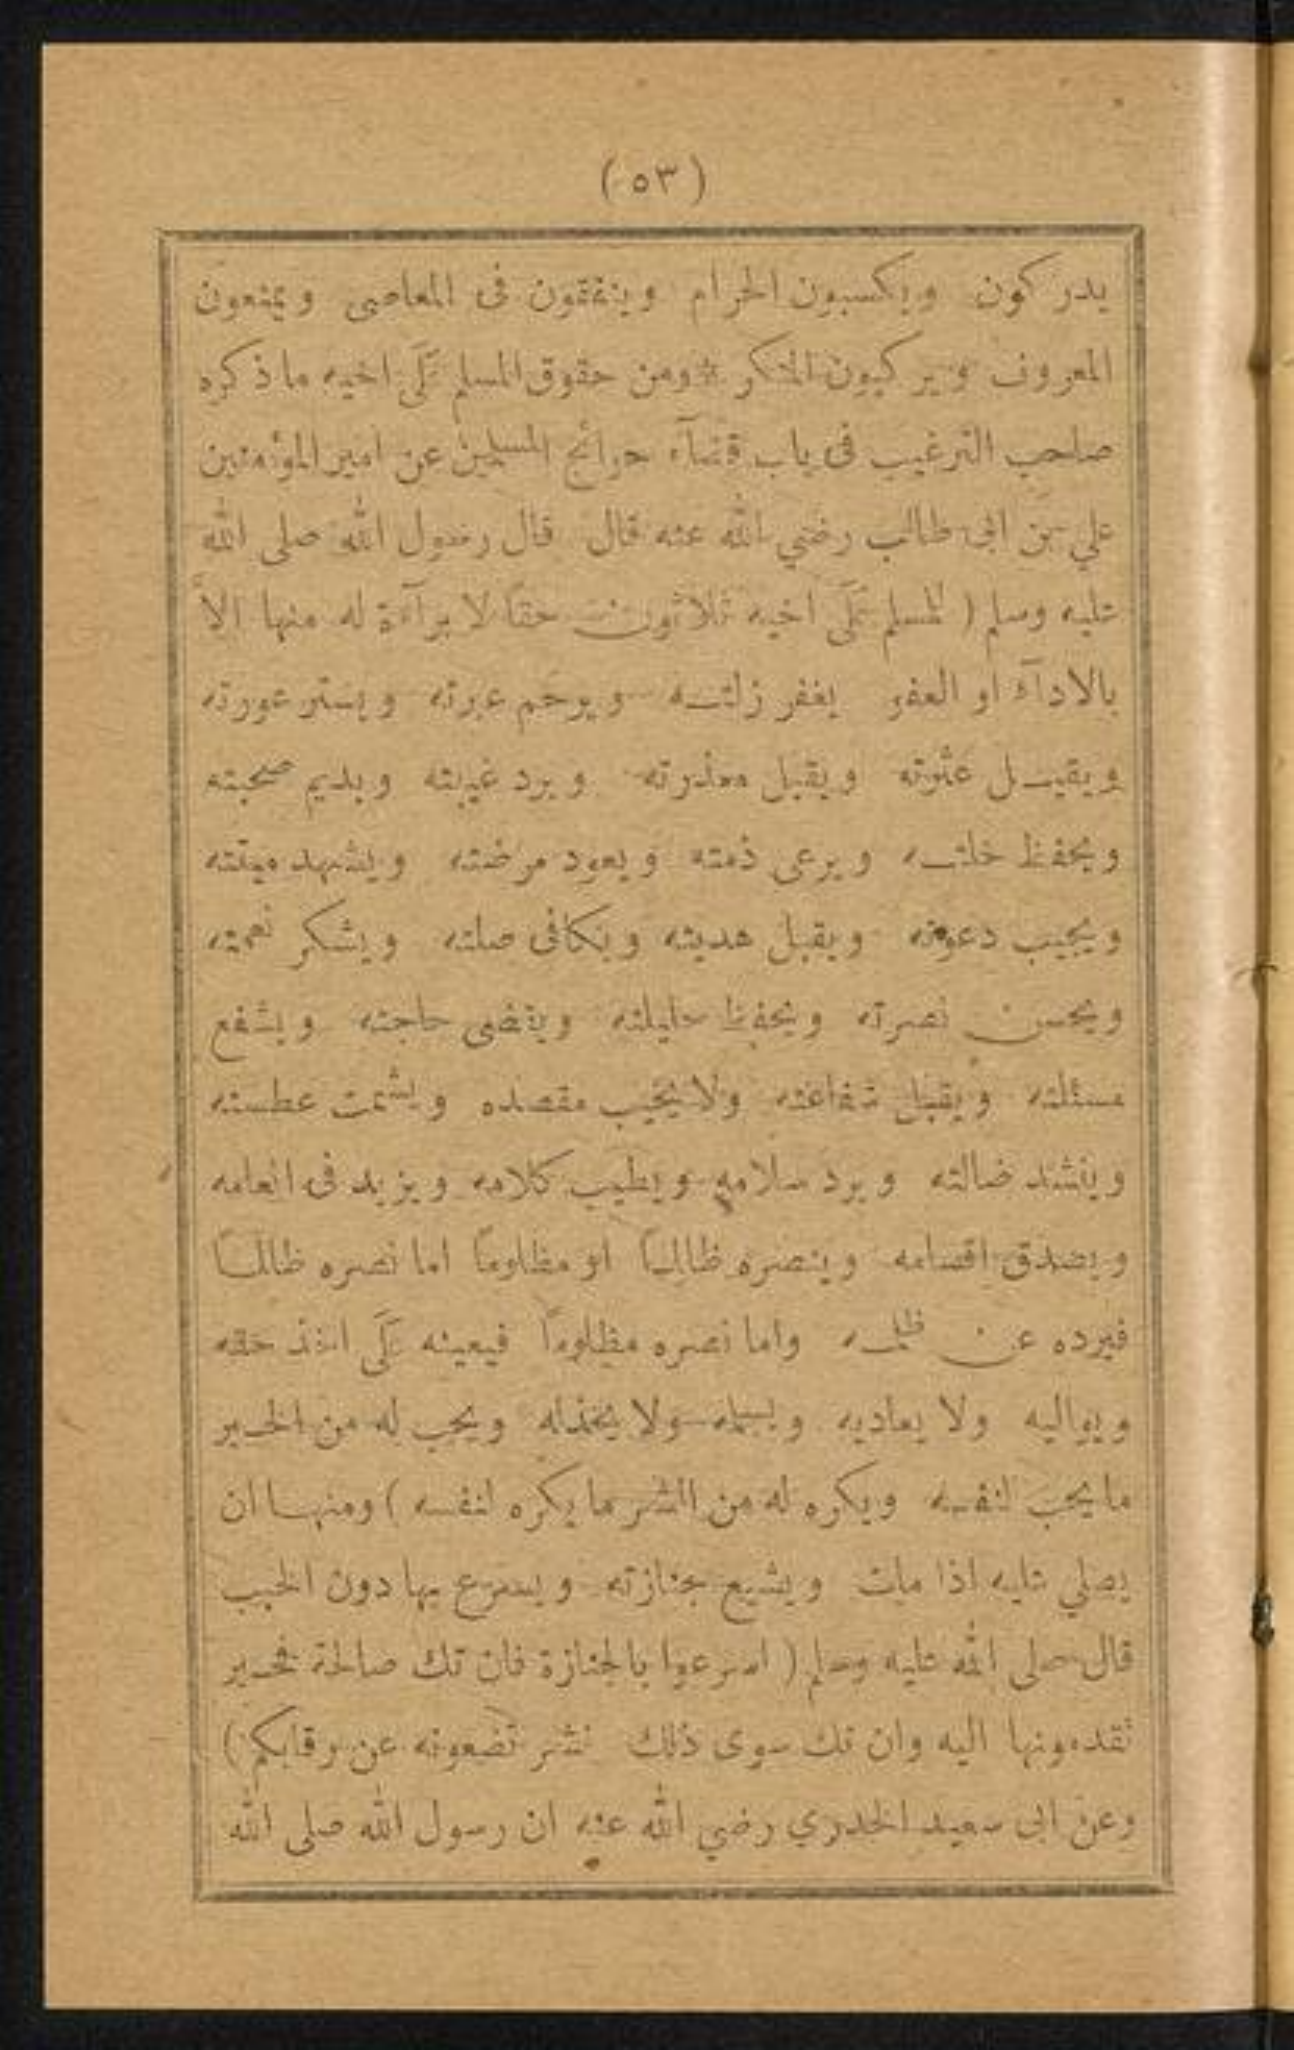 (٥٣)
يدركون ويكسبون الحرام وينفقون فى المعاصى ويمنعون
المعروف ويركبون المنكر * ومن حقوق المسلم عَلَى اخيه ماذكره
صاحب الترغيب فى باب قضآء حوائج المسلمين عن امير المؤمنين
علي بن ابى طالب رضي الله عنه قال قال رسول الله صلى الله
عليه وسلم ( للمسلم عَلَى اخيه ثلاثون حقاً لا برآءة له منها الاَّ
بالادآء او العفو يغفر زلتـه ويرحم عبرته ويستر عورته
ويقيـل عثرته ويقبل معذرته ويرد غيبته ويديم صحبته
ويحفظ خلتـه ويرعى ذمته ويعود مرضته ويشهد ميتته
ويجيب دعوته ويقبل هديته ويكافى صلته ويشكر نعمته
ويحسن نصرته ويحفظ حليلته ويقضى حاجته ويشفع
مسئلته ويقبل شفاعته ولا يخيب مقصده ويشمت عطسته
وينشد ضالته ويرد سلامه ويطيب كلامه ويزيد فى انعامه
ويصدق اقسامه وينصره ظالمـاً او مظلوماً اما نصره ظالمـاً
فيرده عن ظلمـه واما نصره مظلوماً فيعينه عَلَى اخذ حقه
ويواليه ولا يعاديه ويسلمه ولا يخذله ويحب له من الخـير
ما يحب لنفسه ويكره له من الشر ما يكره لنفسه ) ومنهـا ان
يصلي عليه اذا مات ويشيع جنازته ويسرع بها دون الخبب
قال صلى الله عليه وسلم ( اسرعوا بالجنازة فان تك صالحة فخـير
تقدمونها اليه وان تك سوى ذلك فشر تضعونه عن رقابكم )
وعن ابى سعيد الخدري رضي الله عنه ان رسول الله صلى الله